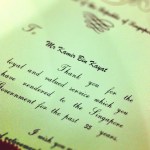 of Singapore
To,
Mr Kamir Bin Kayat
Thank you for the
loyal and valued service which you
have rendered to the Singapore
Government for the past 35 years.
I wish you